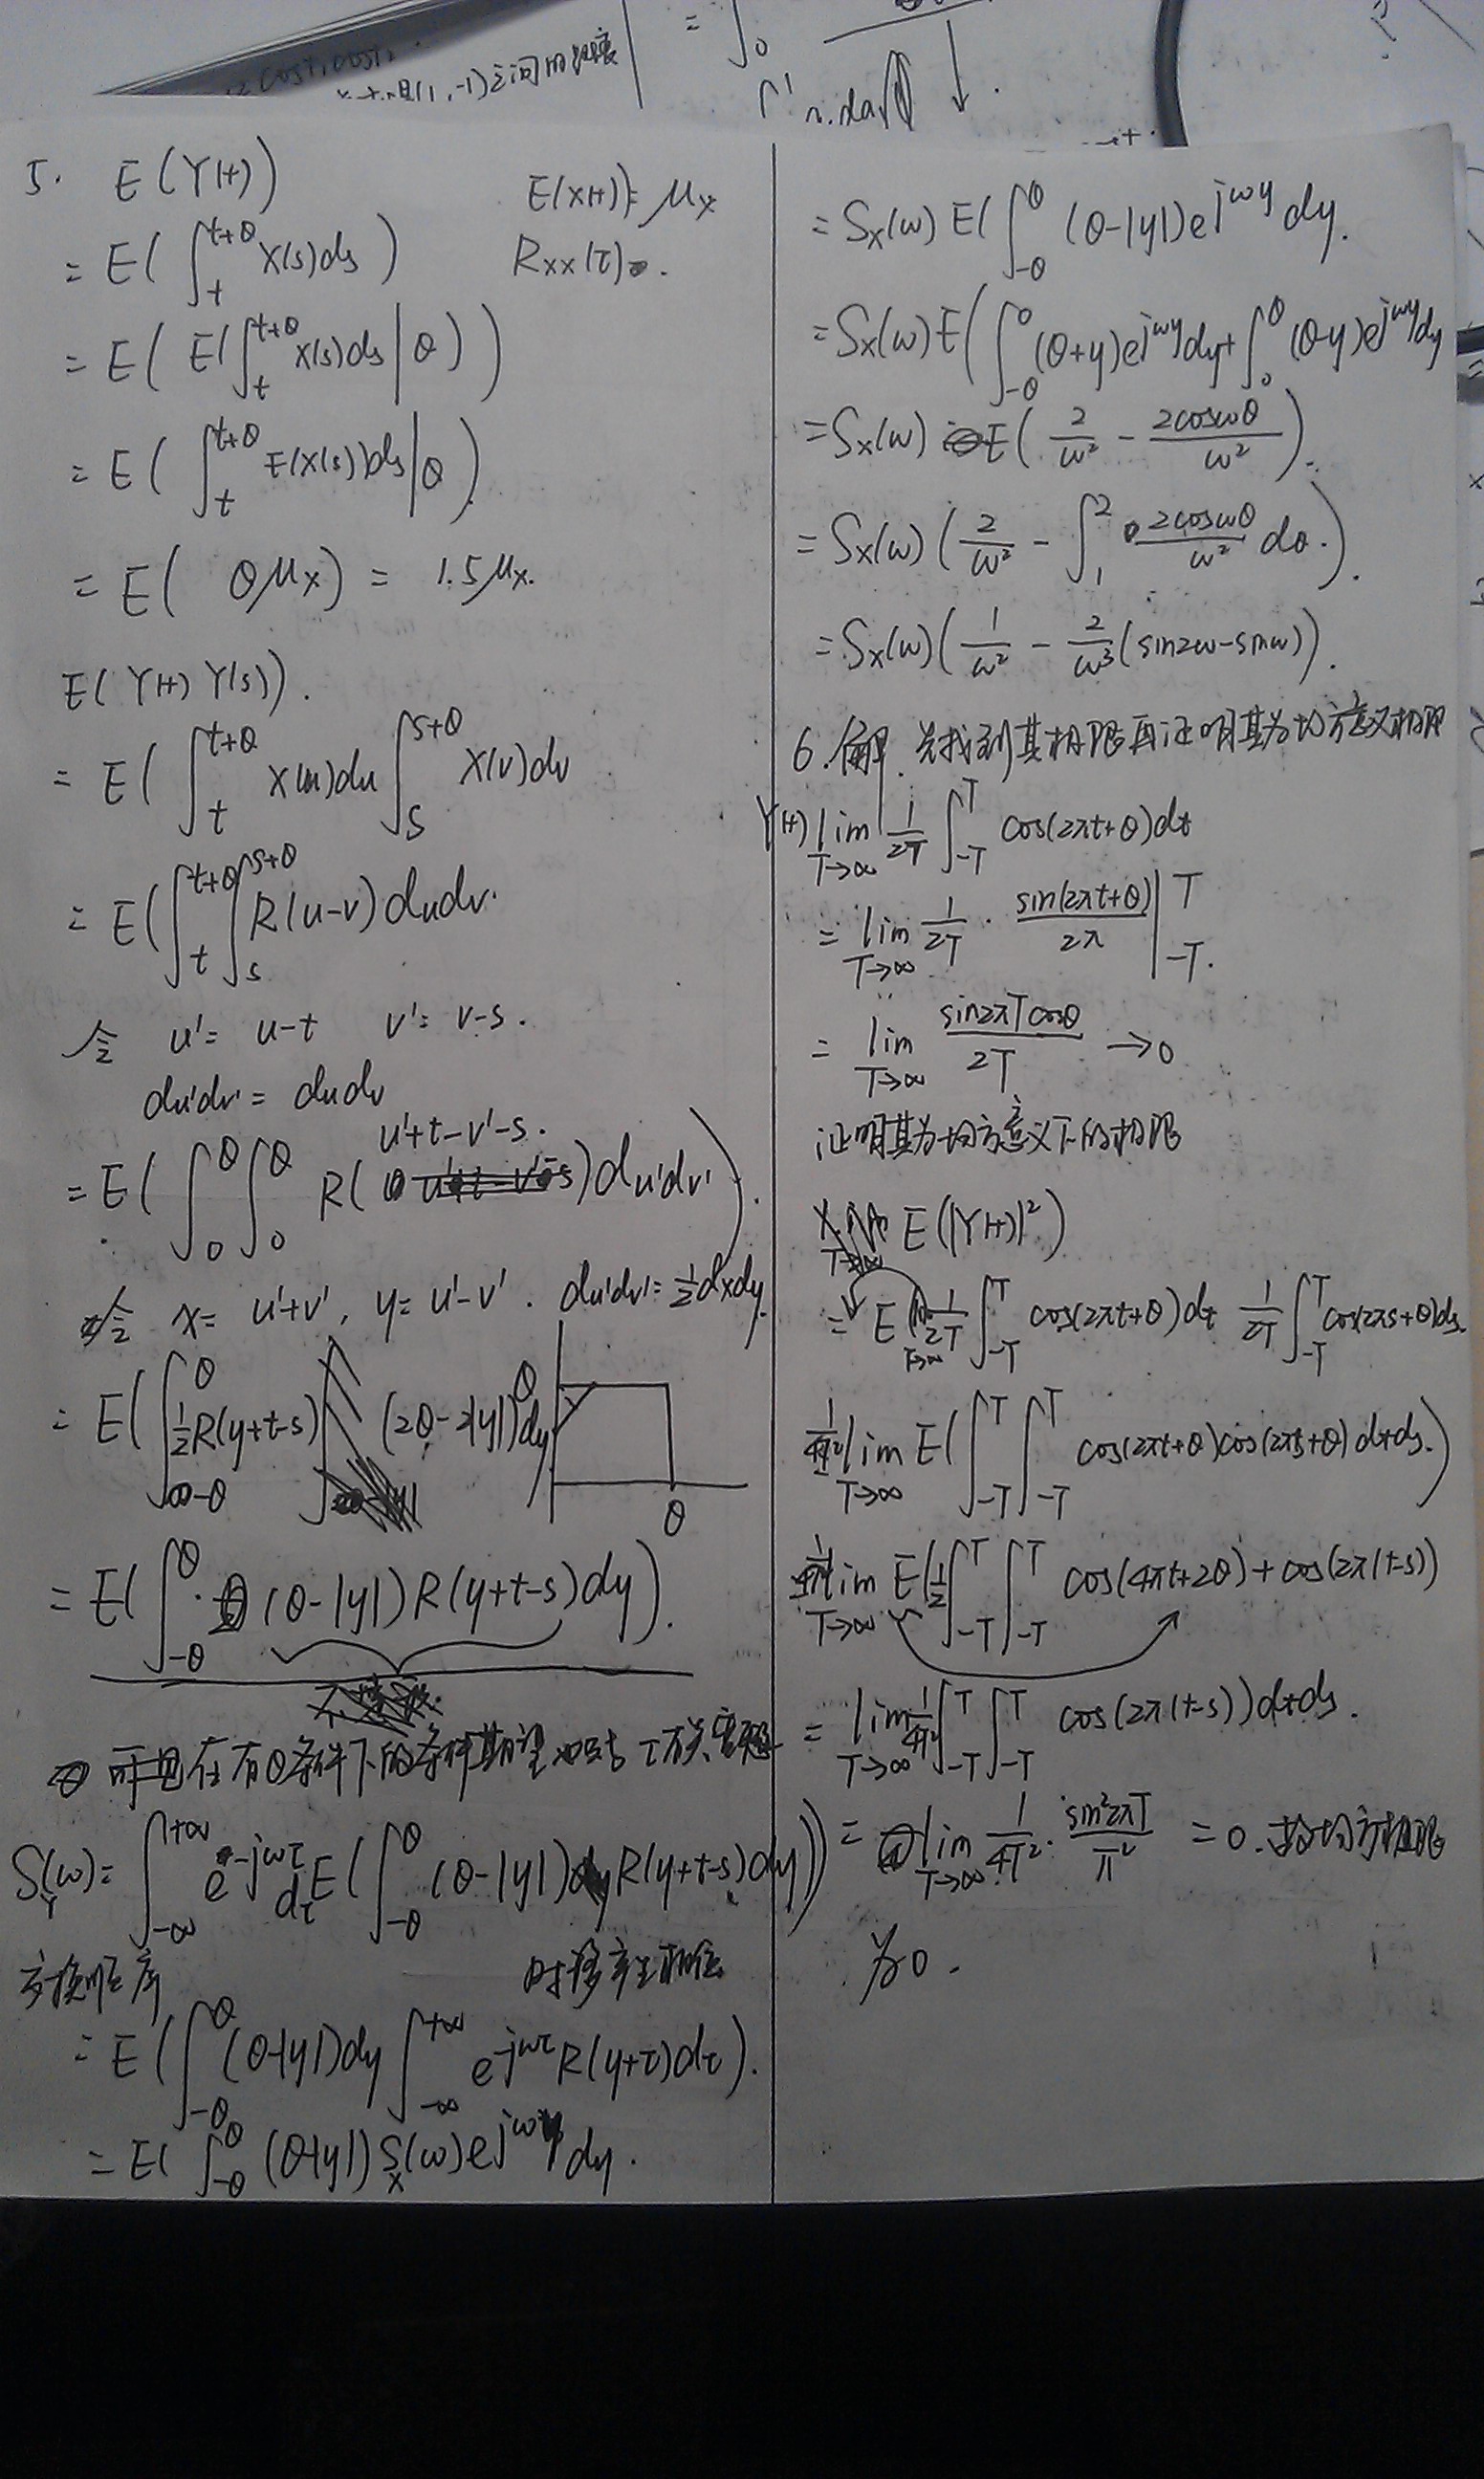 之间的
= ∫₀
5. E(Y(t))
E(X(t))= μx
= E( ∫_t^{t+θ} X(s)ds )
Rxx(τ)
= E( E(∫_t^{t+θ} X(s)ds | θ) )
= E( ∫_t^{t+θ} E(X(s))ds | θ )
= E( θμx ) = 1.5μx.
E(Y(t) Y(s)).
= E( ∫_t^{t+θ} X(u)du ∫_s^{s+θ} X(v)dv
= E( ∫_t^{t+θ} ∫_s^{s+θ} R(u-v)dudv.
令 u'= u-t v'= v-s.
du'dv' = dudv
u'+t-v'-s.
= E( ∫_0^θ ∫_0^θ R( )du'dv' ).
令 x= u'+v', y= u'-v'. du'dv'= ½dxdy
= E( ∫_{-θ}^θ ½R(y+t-s) (2θ-2|y|)dy
θ
θ
= E( ∫_{-θ}^θ (θ-|y|) R(y+t-s)dy ).
可见在有θ条件下的条件期望
S_Y(ω)= ∫_{-∞}^{+∞} e^{-jωτ}dτ E( ∫_{-θ}^θ (θ-|y|) R(y+t-s)dy )
交换顺序 时移产生相位
= E( ∫_{-θ}^θ (θ-|y|)dy ∫_{-∞}^{+∞} e^{-jωτ} R(y+τ)dτ ).
= E( ∫_{-θ}^θ (θ-|y|) S_x(ω)e^{jωy} dy.
= S_x(ω) E( ∫_{-θ}^θ (θ-|y|)e^{jωy} dy.
= S_x(ω) E( ∫_{-θ}^0 (θ+y)e^{jωy}dy + ∫_0^θ (θ-y)e^{jωy}dy
= S_x(ω) E( 2/ω² - 2cosωθ/ω² ).
= S_x(ω) ( 2/ω² - ∫_1^2 2cosωθ/ω² dθ. ).
= S_x(ω) ( 1/ω² - 2/ω³ (sin2ω-sinω) ).
6. 解. 先找到其极限再证明其为均方意义极限
Y(t) lim_{T→∞} 1/2T ∫_{-T}^T cos(2πt+θ)dt
= lim_{T→∞} 1/2T · sin(2πt+θ)/2π |_{-T}^T.
= lim_{T→∞} sin2πT cosθ/2T → 0
证明其为均方意义下的极限
E(|Y(t)|²)
= E lim_{T→∞} 1/2T ∫_{-T}^T cos(2πt+θ)dt 1/2T ∫_{-T}^T cos(2πs+θ)ds.
1/4T² lim_{T→∞} E( ∫_{-T}^T ∫_{-T}^T cos(2πt+θ)cos(2πs+θ)dtds. )
1/4T² lim_{T→∞} E( ½ ∫_{-T}^T ∫_{-T}^T cos(4πt+2θ)+cos(2π(t-s))
= lim_{T→∞} 1/4T² ∫_{-T}^T ∫_{-T}^T cos(2π(t-s))dtds.
= lim_{T→∞} 1/4T² · sin²2πT/π² = 0. 故均方极限
为0.